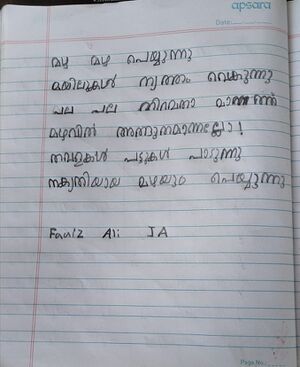 apsara
Date:
മഴ മഴ പെയ്യുന്നു
മയിലുകൾ നൃത്തം വെകുന്നു
പല പല നിറമുള്ള
മഴവിൽ അത്ഭുതമാണല്ലോ!
തവളകൾ പട്ടുകൾ പാടുന്നു
മഴയും പെയ്യുന്നു
Faaiz Ali IA
Page No.: